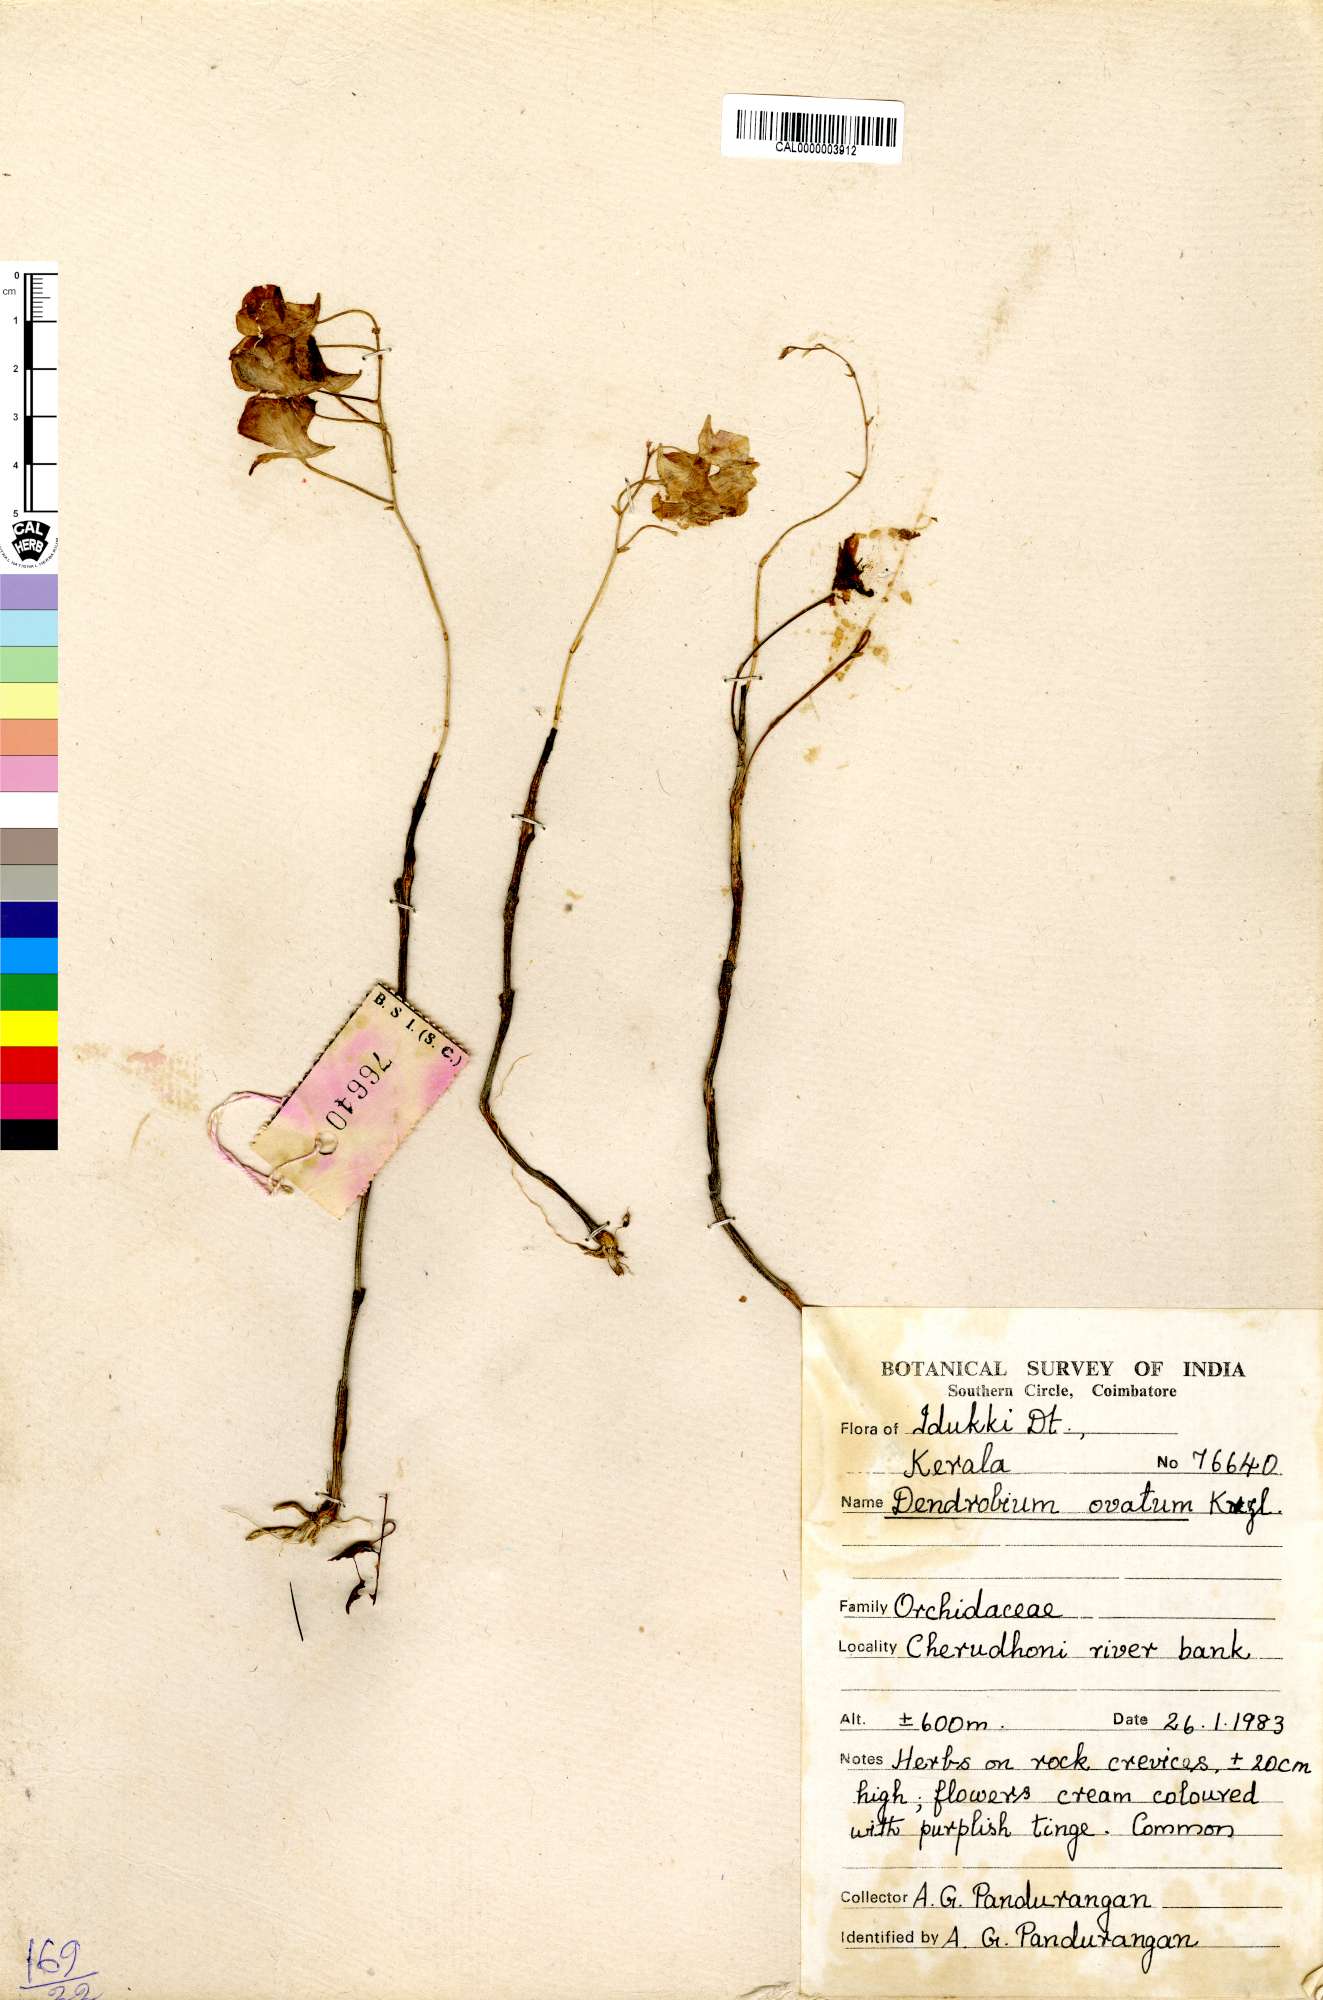 CAL0000003912
0
cm
1
2
3
4
5
CAL
HERB
B. S I. (S. C.)
76640
BOTANICAL SURVEY OF INDIA
Southern Circle, Coimbatore
Flora of Idukki Dt.,
Kerala No 76640
Name Dendrobium ovatum Krzl.
Family Orchidaceae
Locality Cherudhoni river bank
Alt. ± 600m. Date 26.1.1983
Notes Herbs on rock crevices, ± 20cm
high; flowers cream coloured
with purplish tinge. Common
Collector A. G. Pandurangan
Identified by A. G. Pandurangan
169
22